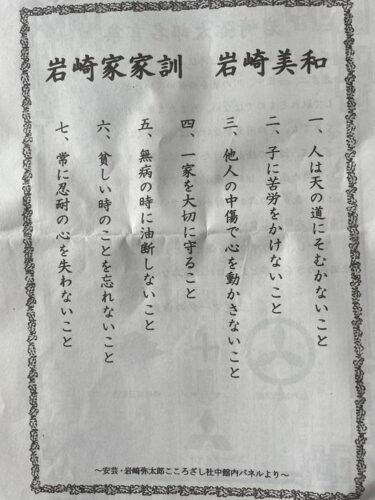 岩崎家家訓　岩崎美和
一、人は天の道にそむかないこと
二、子に苦労をかけないこと
三、他人の中傷で心を動かさないこと
四、一家を大切に守ること
五、無病の時に油断しないこと
六、貧しい時のことを忘れないこと
七、常に忍耐の心を失わないこと
～安芸・岩崎弥太郎こころざし社中館内パネルより～